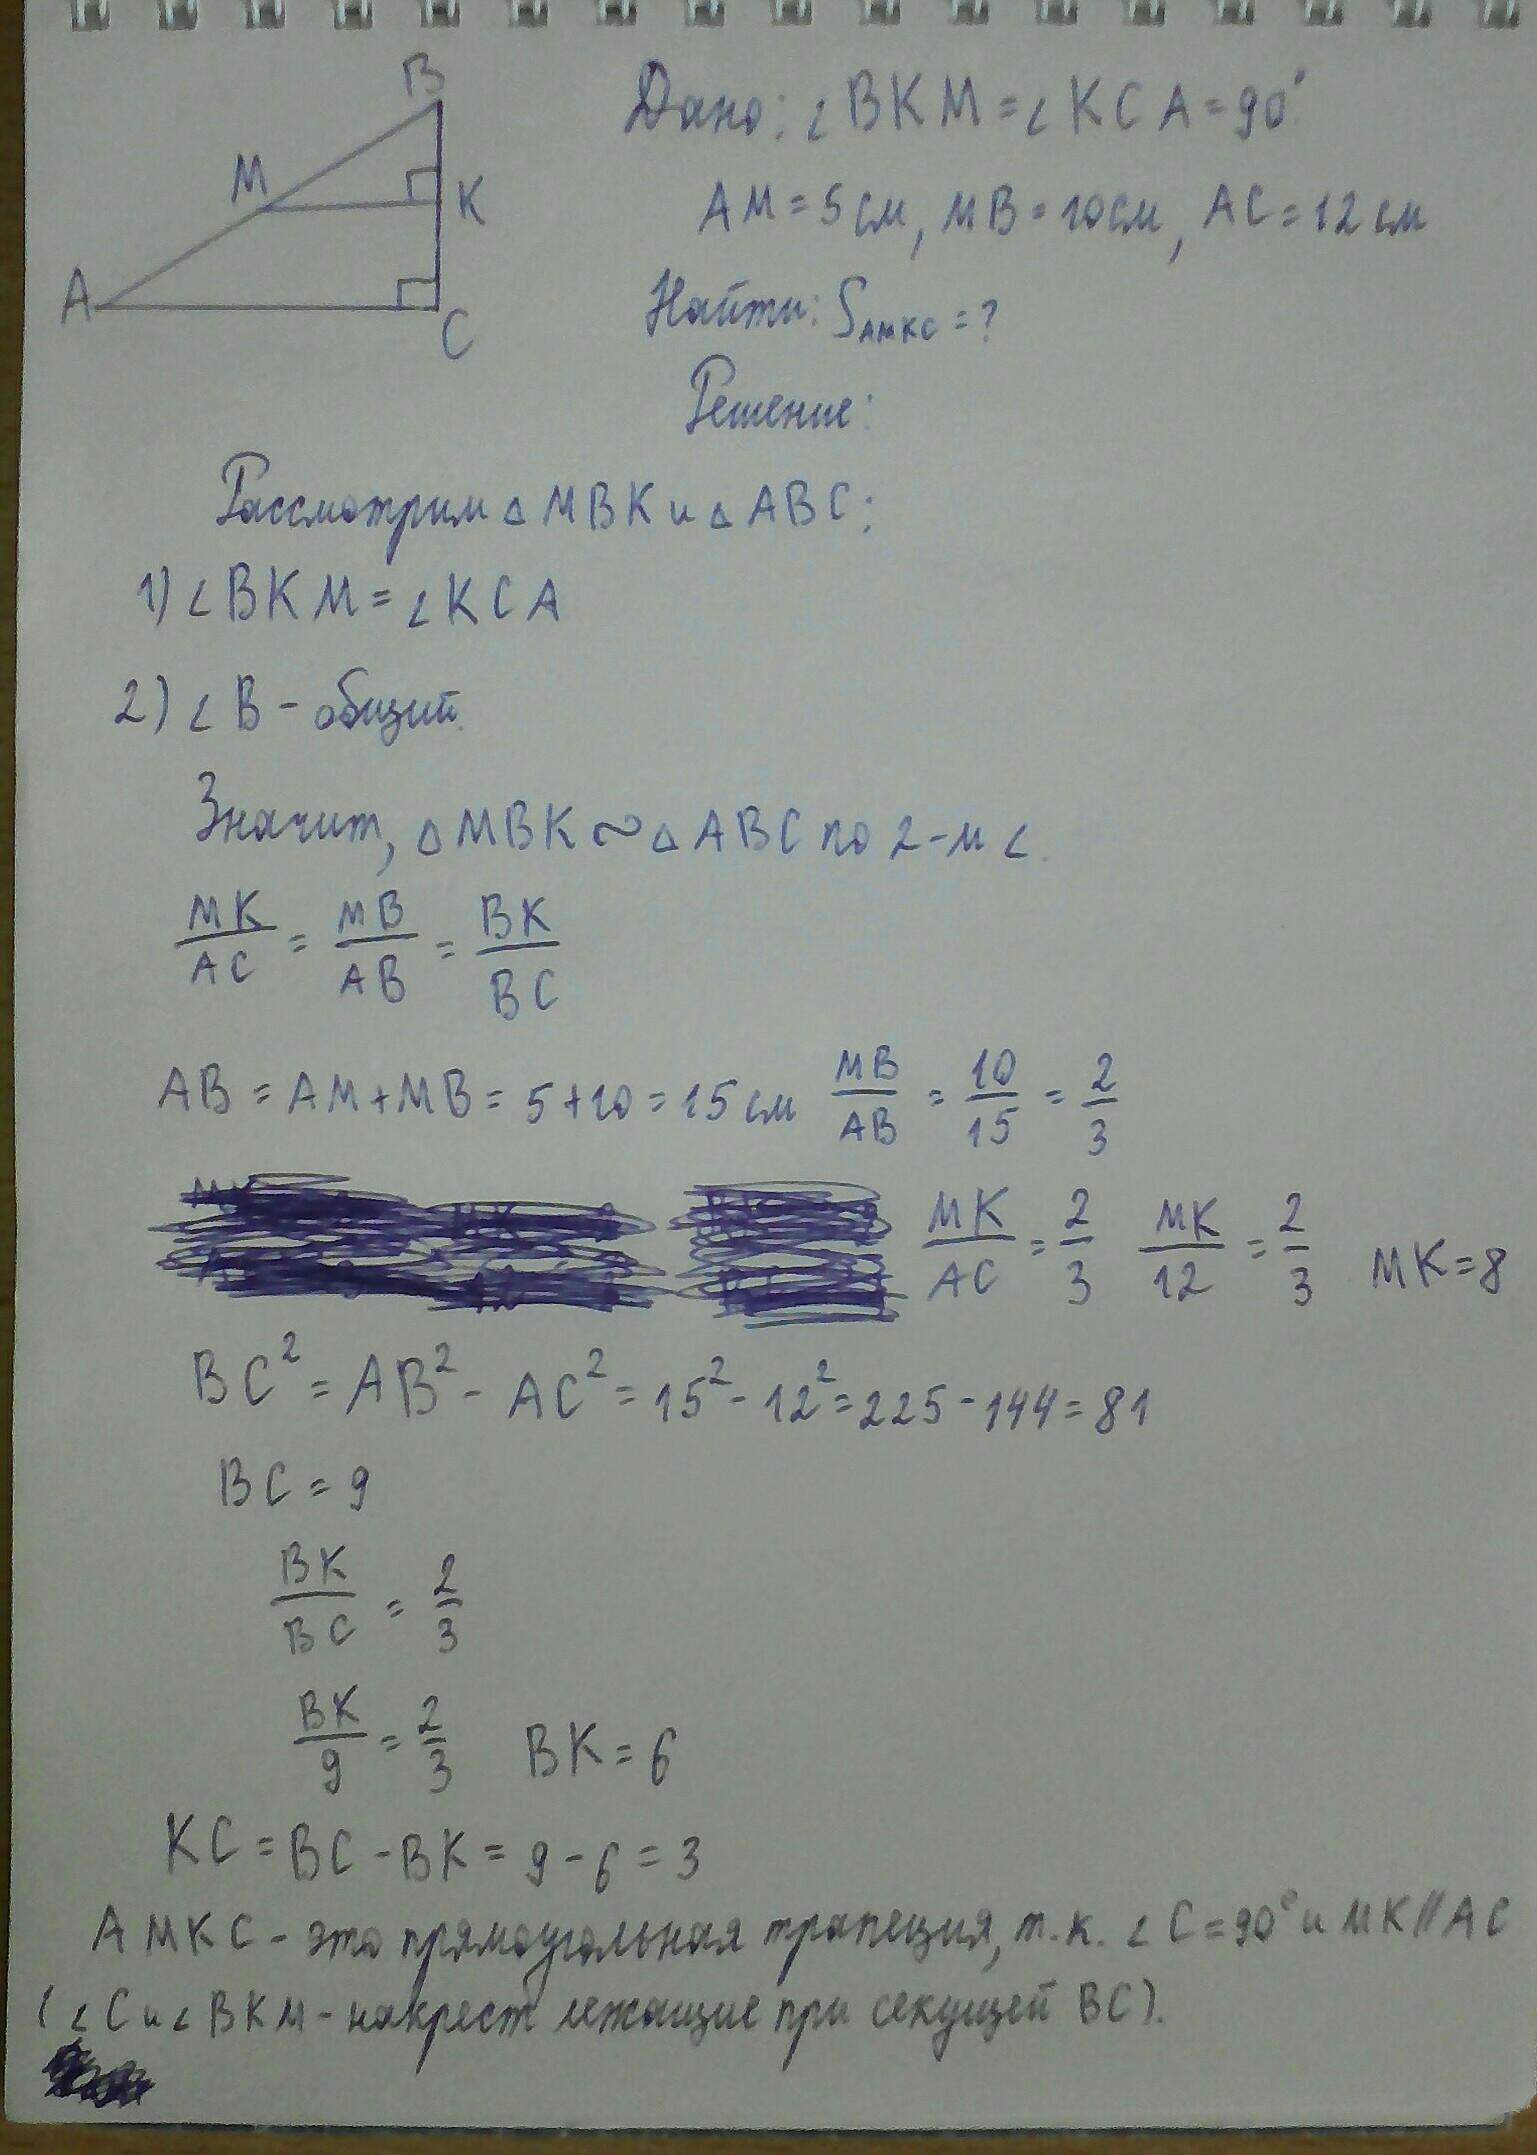 B
M
K
A
C
Дано: ∠BKM = ∠KCA = 90°
AM = 5 см, MB = 10 см, AC = 12 см
Найти: S_AMKC = ?
Решение:
Рассмотрим △MBK и △ABC:
1) ∠BKM = ∠KCA
2) ∠B - общий.
Значит, △MBK ∾ △ABC по 2-м ∠.
MK/AC = MB/AB = BK/BC
AB = AM + MB = 5 + 10 = 15 см MB/AB = 10/15 = 2/3
MK/AC = 2/3 MK/12 = 2/3 MK = 8
BC² = AB² - AC² = 15² - 12² = 225 - 144 = 81
BC = 9
BK/BC = 2/3
BK/9 = 2/3 BK = 6
KC = BC - BK = 9 - 6 = 3
AMKC - это прямоугольная трапеция, т.к. ∠C = 90° и MK // AC
(∠C и ∠BKM - накрест лежащие при секущей BC).